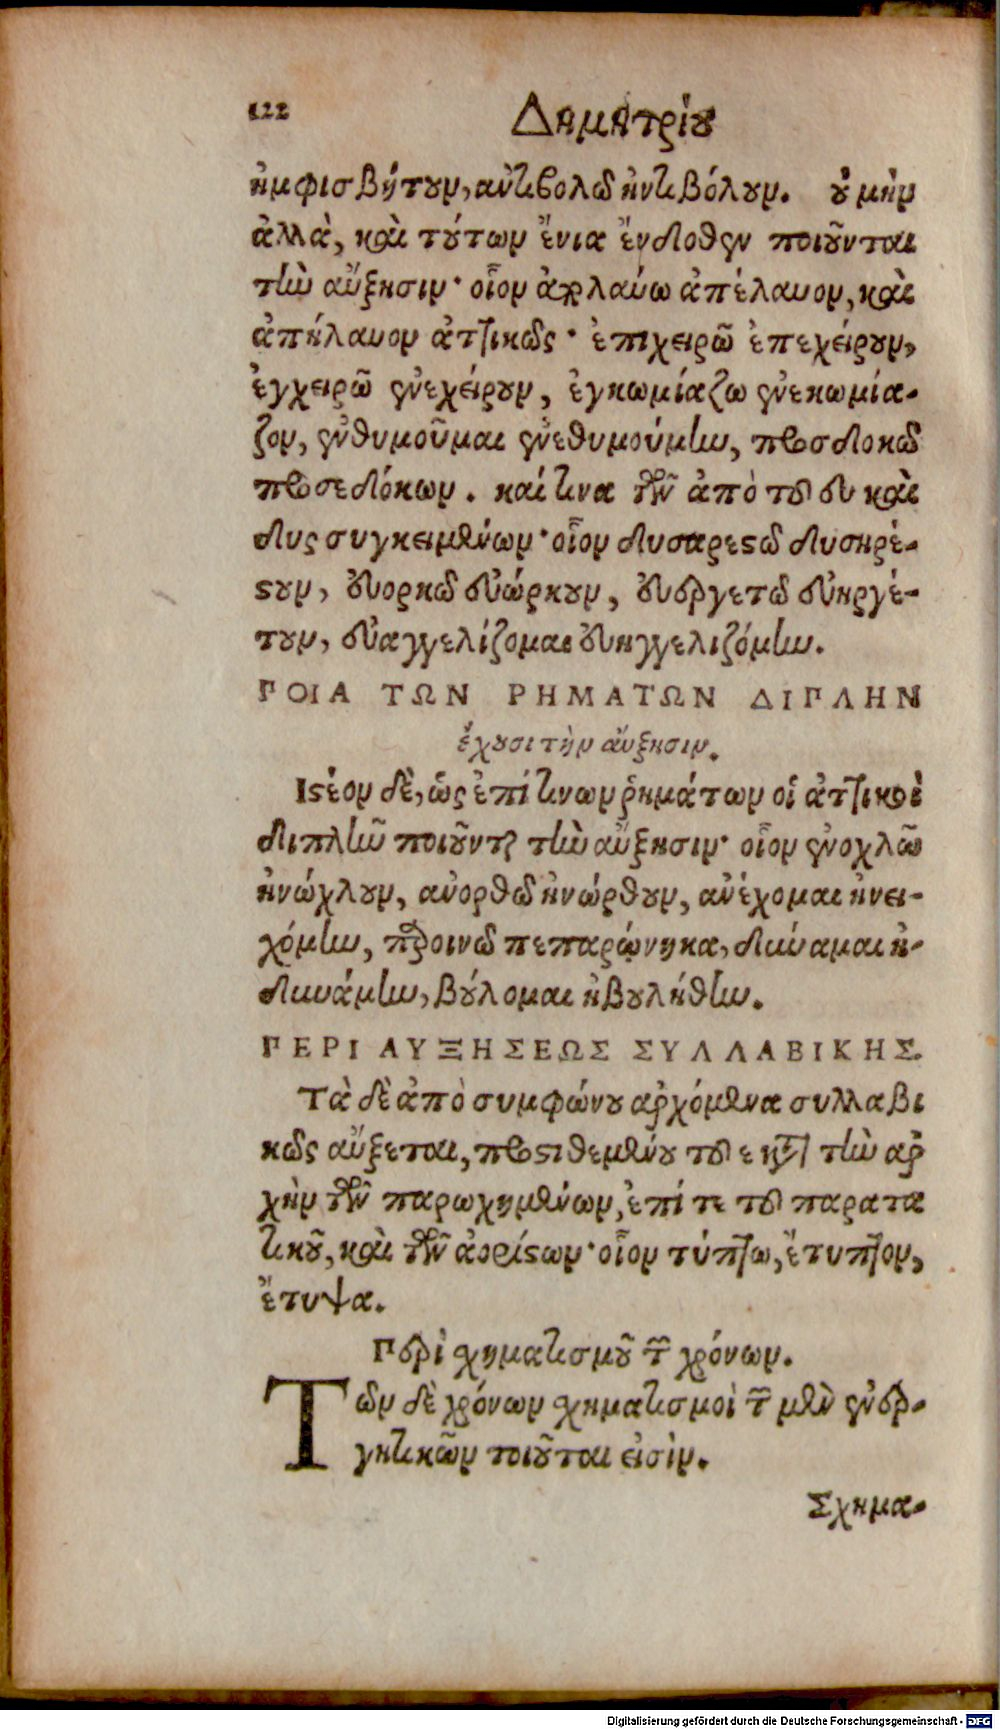 122 Δημητρίου
ἠμφισβήτουν, ἀντιβολῶ ἠντιβόλουν. οὐ μὴν
ἀλλὰ, καὶ τούτων ἔνια ἔνδοθεν ποιοῦνται
τὴν αὔξησιν· οἷον ἀπολαύω ἀπέλαυον, καὶ
ἀπήλαυον ἀττικῶς· ἐπιχειρῶ ἐπεχείρουν,
ἐγχειρῶ ἐνεχείρουν, ἐγκωμίαζω ἐνεκωμία-
ζον, ἐνθυμοῦμαι ἐνεθυμούμην, προσδοκῶ
προσεδόκων. καί τινα τῶν ἀπὸ τοῦ ευ καὶ
δυς συγκειμένων· οἷον δυσαρεστῶ δυσηρέ-
στουν, εὐορκῶ εὐώρκουν, εὐεργετῶ εὐηργέ-
τουν, εὐαγγελίζομαι εὐηγγελιζόμην.
ΠΟΙΑ ΤΩΝ ΡΗΜΑΤΩΝ ΔΙΠΛΗΝ
ἔχουσι τὴν αὔξησιν.
Ιστέον δὲ, ὡς ἐπί τινων ῥημάτων οἱ ἀττικοὶ
διπλὴν ποιοῦνται τὴν αὔξησιν· οἷον ἐνοχλῶ
ἠνώχλουν, ἀνορθῶ ἠνώρθουν, ἀνέχομαι ἠνει-
χόμην, παροινῶ πεπαρῴνηκα, δύναμαι ἠ-
δυνάμην, βούλομαι ἠβουλήθην.
ΠΕΡΙ ΑΥΞΗΣΕΩΣ ΣΥΛΛΑΒΙΚΗΣ.
Τὰ δὲ ἀπὸ συμφώνου ἀρχόμενα συλλαβι
κῶς αὔξεται, προστιθεμένου τοῦ ε κατὰ τὴν ἀρ
χὴν τῶν παρωχημένων, ἐπί τε τοῦ παρατα
τικοῦ, καὶ τῶν ἀορίστων· οἷον τύπτω, ἔτυπτον,
ἔτυψα.
Περὶ σχηματισμοῦ τῶν χρόνων.
Τῶν δὲ χρόνων σχηματισμοὶ τῶν μὲν ἐνερ-
γητικῶν τοιοῦτοι εἰσὶν.
Σχημα-
Digitalisierung gefördert durch die Deutsche Forschungsgemeinschaft - DFG